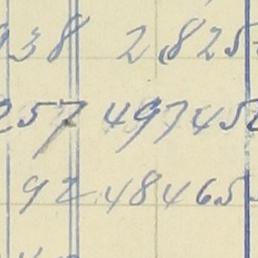 938 2825
257 497450
92 48465